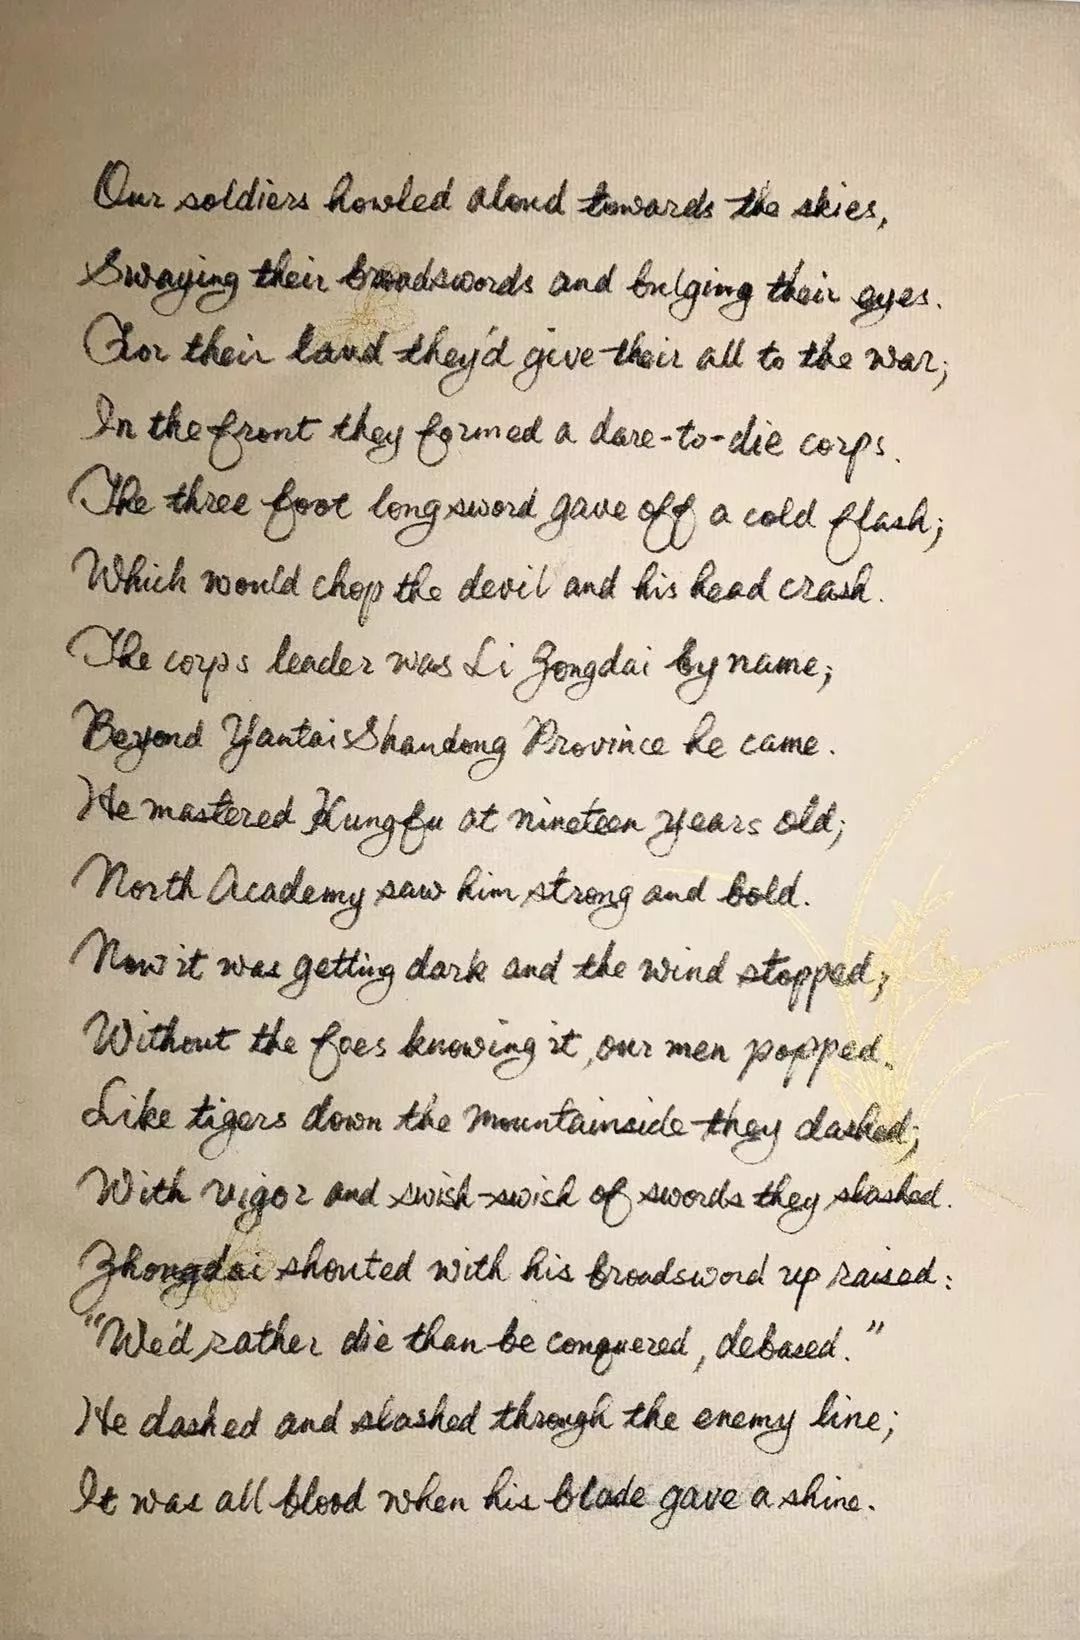 Our soldiers howled aloud towards the skies,
Swaying their broadswords and bulging their eyes.
For their land they'd give their all to the war;
In the front they formed a dare-to-die corps.
The three foot long sword gave off a cold flash;
Which would chop the devil and his head crash.
The corps leader was Li Zongdai by name;
Beyond Yantai Shandong Province he came.
He mastered Kungfu at nineteen years old;
North Academy saw him strong and bold.
Now it was getting dark and the wind stopped;
Without the foes knowing it, our men popped.
Like tigers down the mountainside they dashed;
With vigor and swish-swish of swords they slashed.
Zhongdai shouted with his broadsword up raised:
"We'd rather die than be conquered, debased."
He dashed and slashed through the enemy line;
It was all blood when his blade gave a shine.